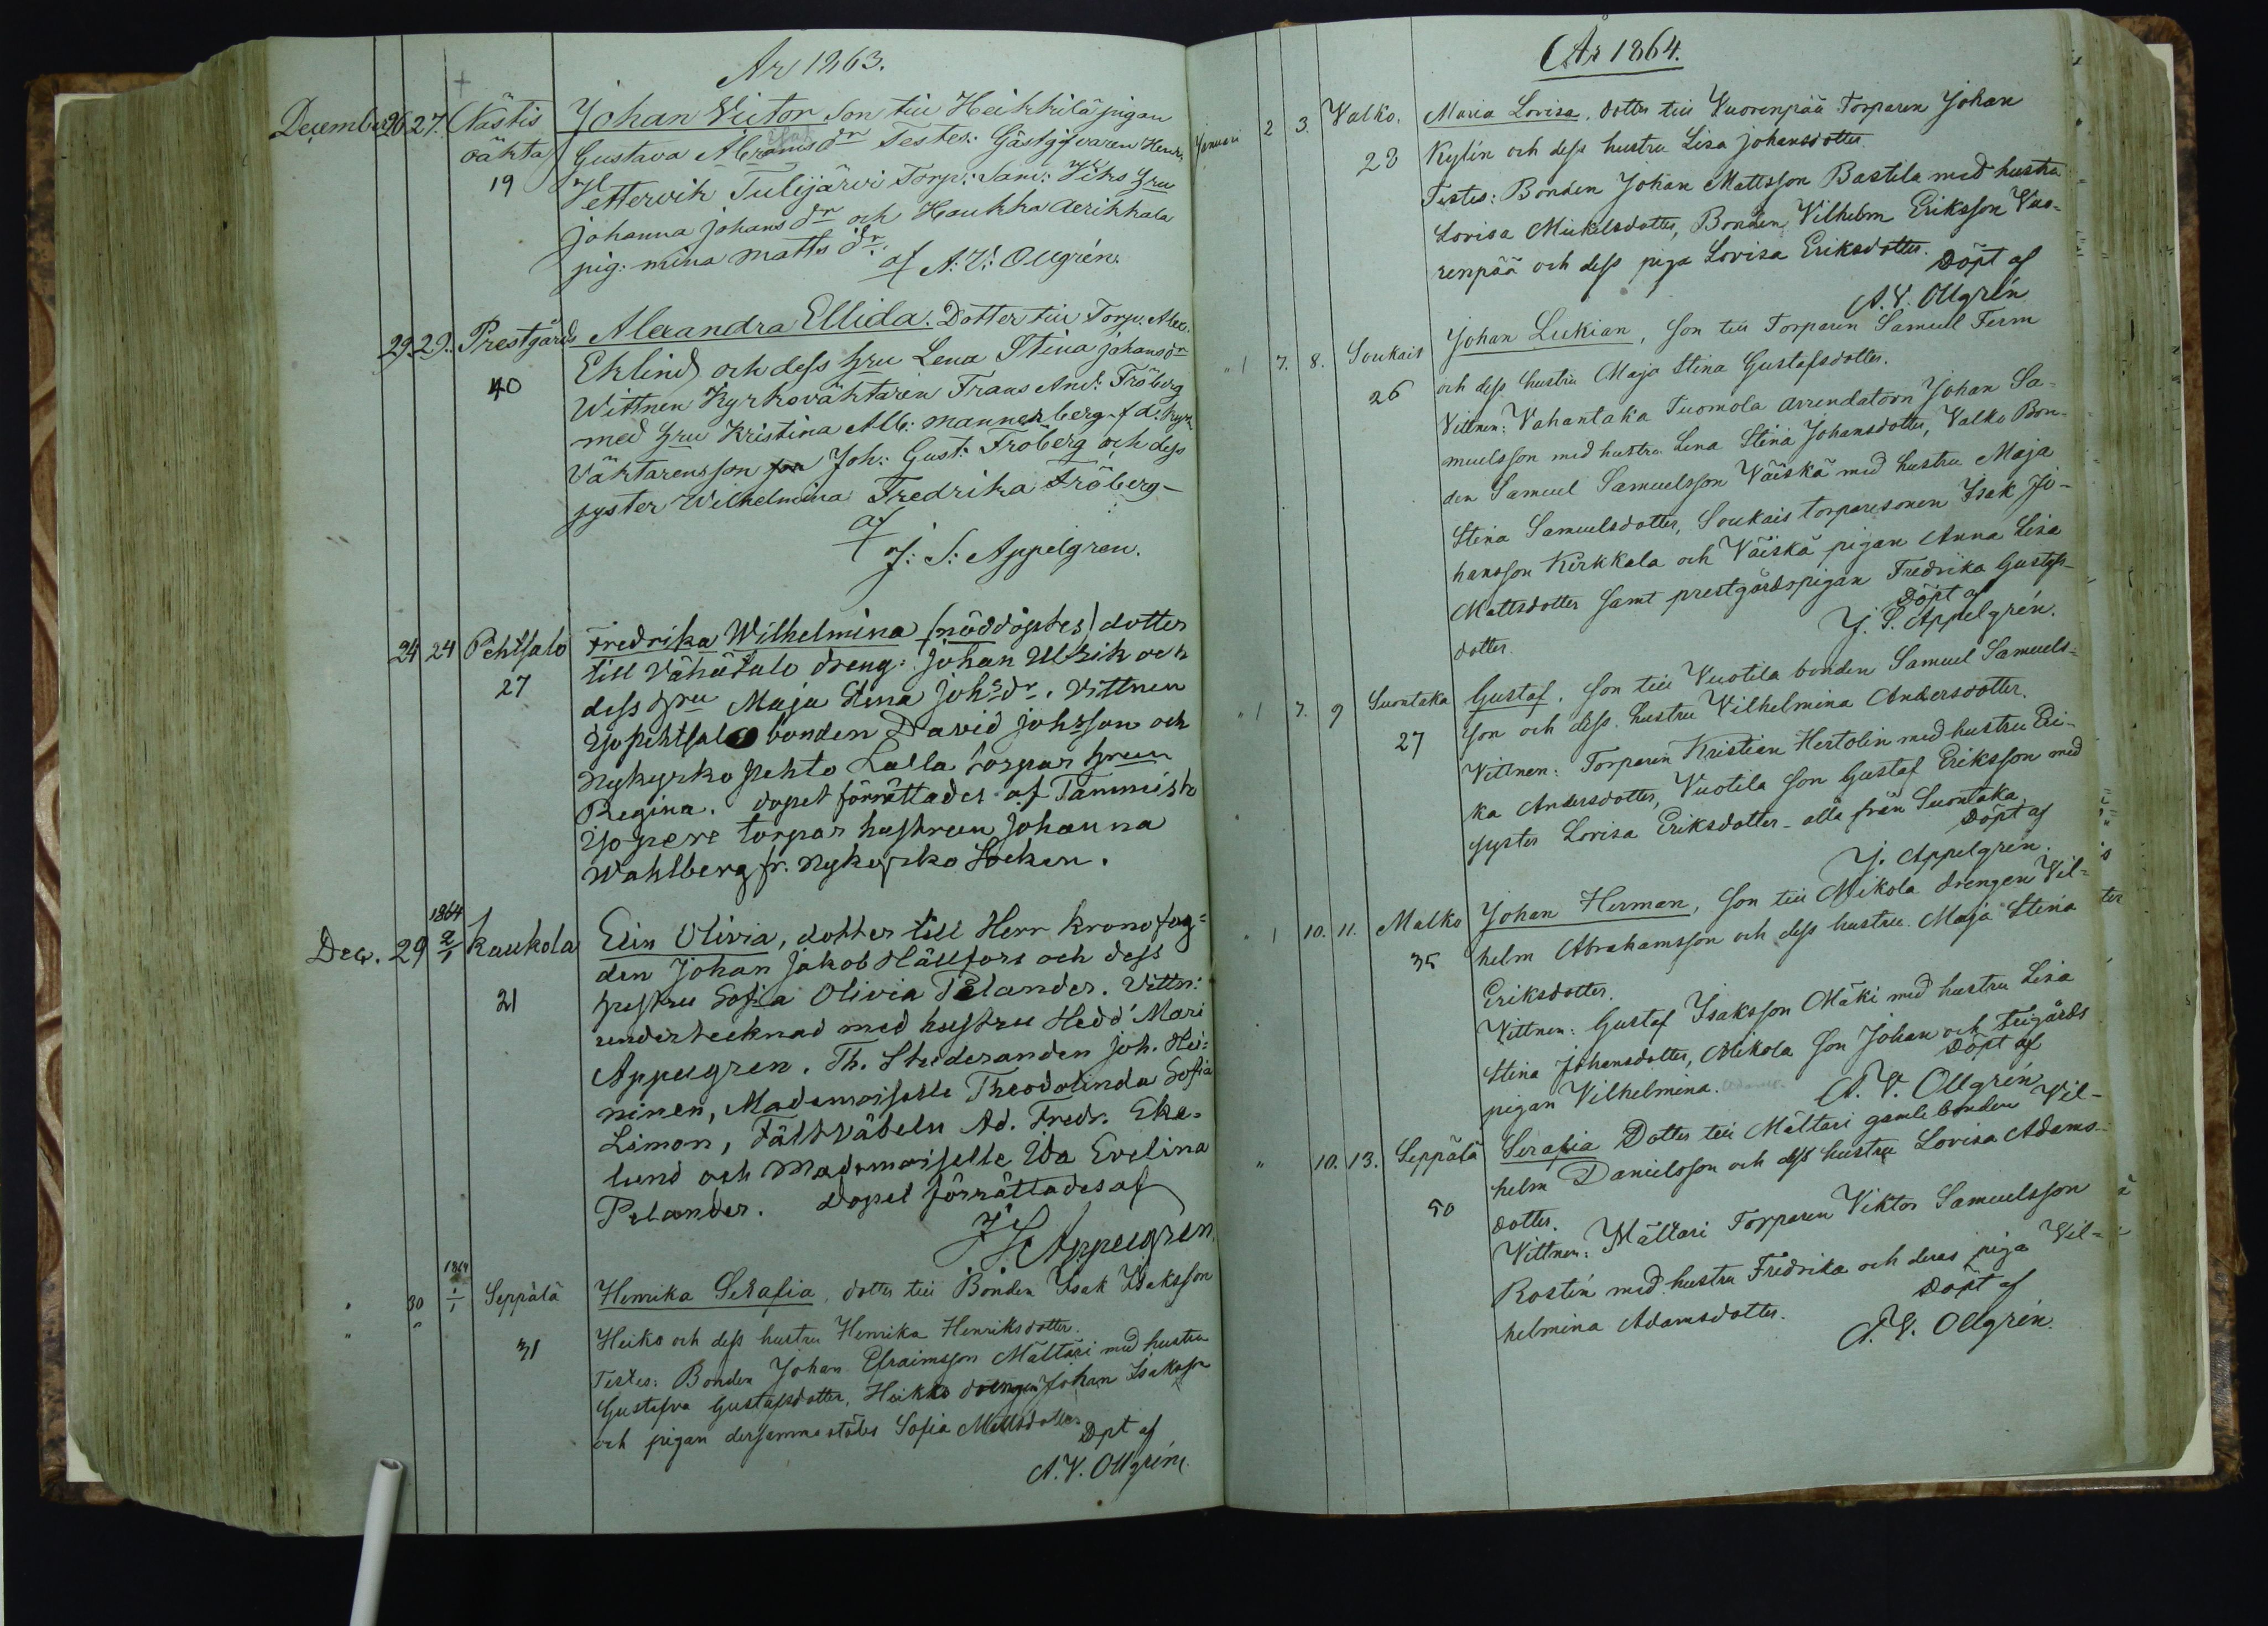 År 1863.
December 26. 27. Nästis Johan Victor Son till Heikkilä pigan
oäkta Gustava Abramsdr Testes: Gästgifvaren Henr.
19 Ylettervik Tulijärvi Torp: Sam: Viks hru
Johanna Johansdr och Haukka Aerikkala
pig: mina Mattsdr.
af A: V: Ollgrén.
29. 29. Prestgårds Alexandra Ellida. Dotter till Torp. Alex.
Eklind och dess hru Lena Stina Johansdr
40 Wittnen Kyrkoväktaren Frans And: Fröberg
med hru Kristina Alb: Mannerberg f d. Kyrk
Väktarensson Joh: Gust: Fröberg och dess
syster Wilhelmina Fredrika Fröberg
af
J: S: Appelgren.
24 24 Pehtsalo Fredrika Wilhelmina (nöddöptes) dotter
27 till Vähätalo dreng: Johan Ulrik och
dess hru Maja Stina Johsdr. Vittnen
Yjopehtsalo bonden David Johsson och
Nykyrko Pehto Lalla torpar hrun
Regina. dopet förrättades af Tammisto
Yjopere torpar hustrun Johanna
Wahlberg fr. Nykyrko Socken.
1864
Dec. 29 2/1 Kaukola Elin Olivia, dotter till Herr Kronofog=
den Johan Jakob Hällfors och dess
21 hustru Sofia Olivia Pelander. Vittn:
undertecknad med hustru Hedd Mari
Appelgren. Th. Studeranden Joh. Hei=
ninen, Mademoiselle Theodolinda Sofia
Limon, Fältväbeln Ad. Fredr. Eke=
lund och Mademoiselle Ida Evelina
Pelander. dopet förrättades af
J S Appelgren.
1864
" 30 1/1 Seppälä Henrika Serafia, dotter till Bonden Isak Isaksson
31 Heiko och dess hustru Henrika Henriksdotter.
Testes: Bonden Johan Efraimsson Mälläri med hustru
Gustafva Gustafsdotter, Heikko drengen Johan Isaksson
och pigan dersammastädes Sofia Mattsdotter
Dpt af
A. V. Ollgrén.
År 1864.
Januari 2 3. Valko. Maria Lovisa, dotter till Vuorenpää Torparen Johan
28 Kylin och dess hustru Lisa Johansdotter.
Testes: Bonden Johan Mattsson Bastila med hustru
Lovisa Mickelsdotter, Bonden Vilhelm Eriksson Vuo=
renpää och dess piga Lovisa Eriksdotter. Döpt af
A. V. Ollgrén
" 7. 8. Soukais Johan Lukian, Son till Torparen Samuel Ferm
26 och dess hustru Maja Stina Gustafsdotter.
Vittnen: Vahantaka Tuomola arrendatorn Johan Sa=
muelsson med hustru Lena Stina Johansdotter, Valko Bon=
den Samuel Samuelsson Väiskä med hustru Maja
Stina Samuelsdotter, Soukais torparesonen Isak Jo=
hansson Kirkkala och Väiskä pigan Anna Lisa
Mattsdotter samt prestgårdspigan Fredrika Gustafs
dotter. Döpt af
J. S. Appelgrén.
" 7. 9 Suontaka Gustaf, Son till Vuotila bonden Samuel Samuels=
27 son och dess hustru Vilhelmina Andersdotter.
Vittnen: Torparen Kristian Hertolin med hustru Eri=
ka Andersdotter, Vuotila Son Gustaf Eriksson med
syster Lovisa Eriksdotter - alla från Suontaka
Döpt af
J. Appelgrén.
" 10. 11. Malko Johan Herman, Son till Mikola drengen Vil=
35 helm Abrahamsson och dess hustru Maja Stina
Eriksdotter.
Vittnen: Gustaf Isaksson Mäki med hustru Lisa
Stina Johansdotter, Mikola Son Johan och Feigårds
pigan Vilhelmina. Döpt af
A. V. Ollgrén
" 10. 13. Seppälä Serafia Dotter till Mältäri gamle bonden Vil=
helm Danielsson och dess hustru Lovisa Adams=
50 dotter.
Vittnen: Mältäri Torparen Viktor Samuelsson
Rostén med hustru Fredrika och deras piga Vil=
helmina Adamsdotter. Döpt af
A. V. Ollgrén.